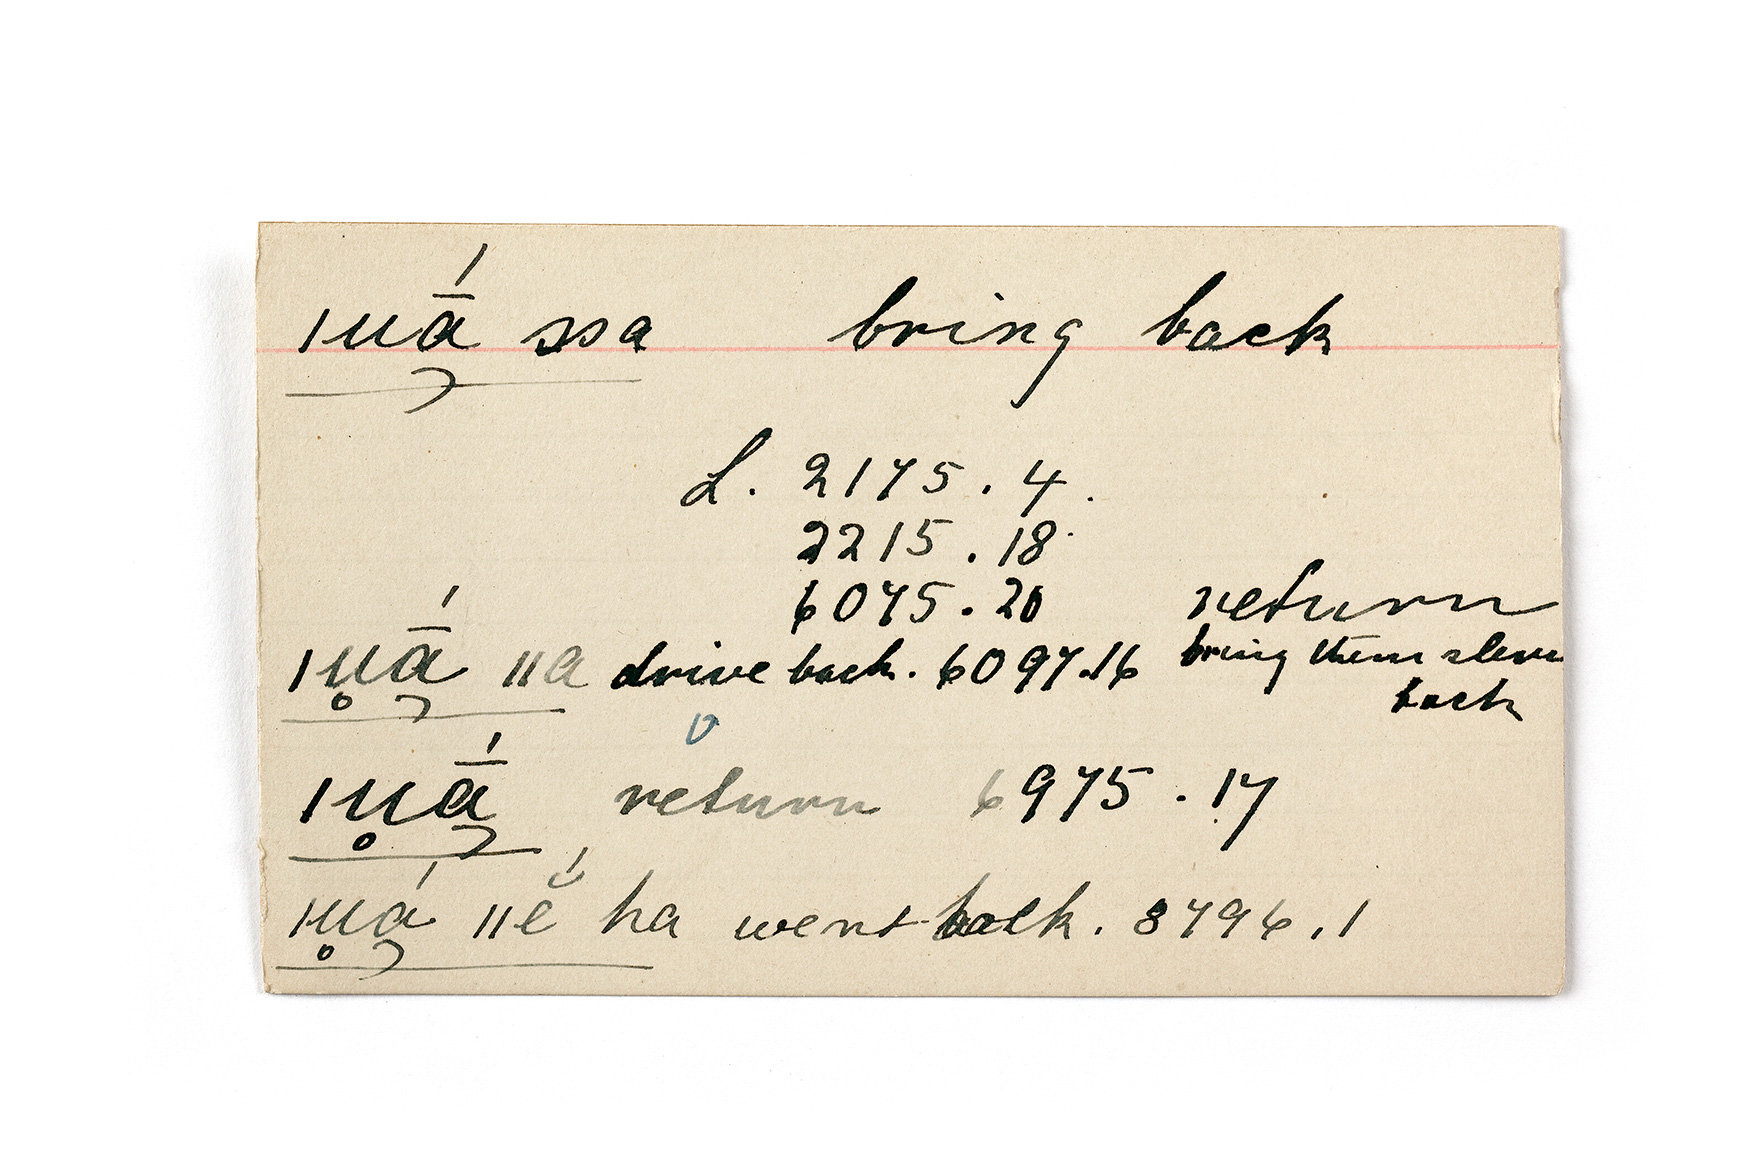 ǀuā́ ssa bring back
L. 2175.4.
2215.18.
6075.20 return
ǀu̥ā́ ǁa drive back. 6097.16 bring them
back
ǀu̥ā́ return 6975.17
ǀu̥á ǁĕ́ ha went back. 8796.1